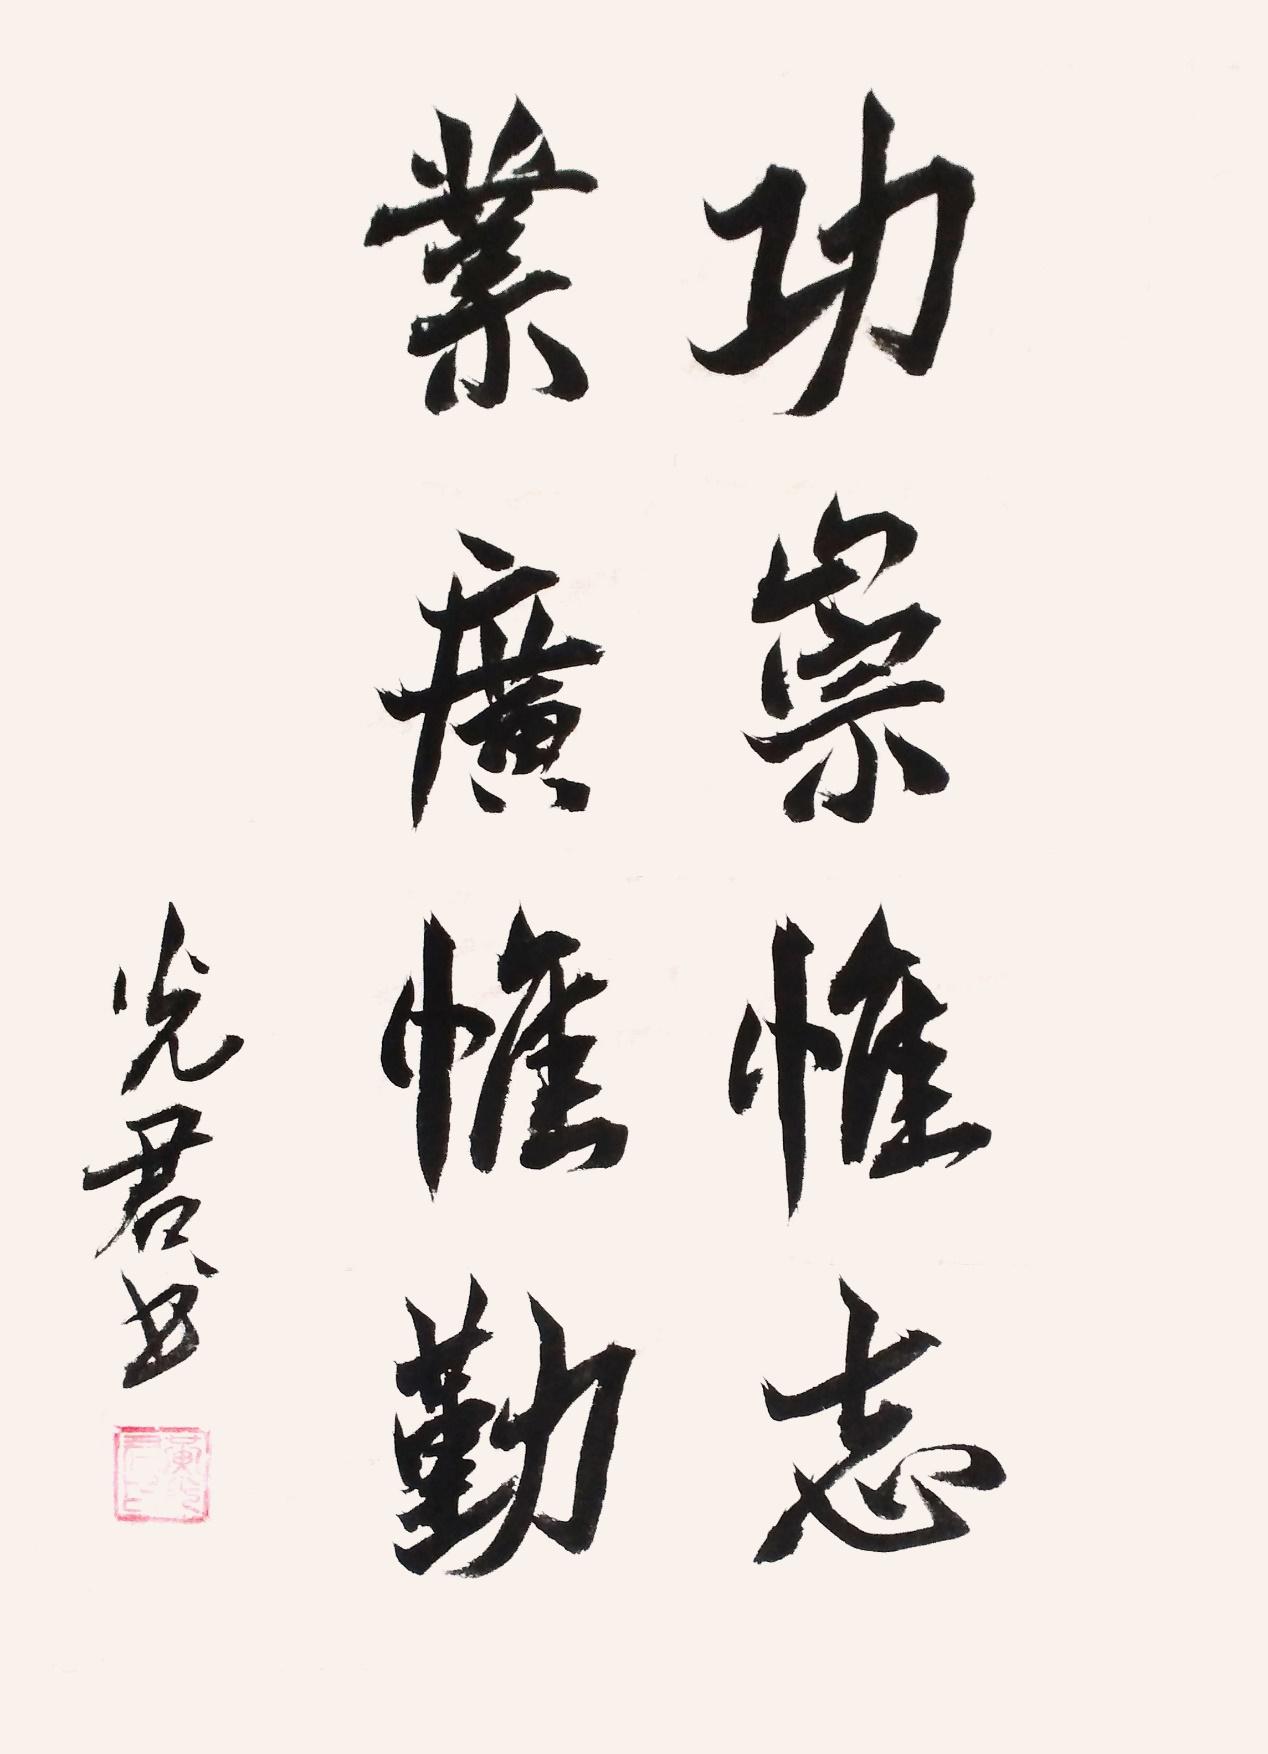 功崇惟志
業廣惟勤
光君书